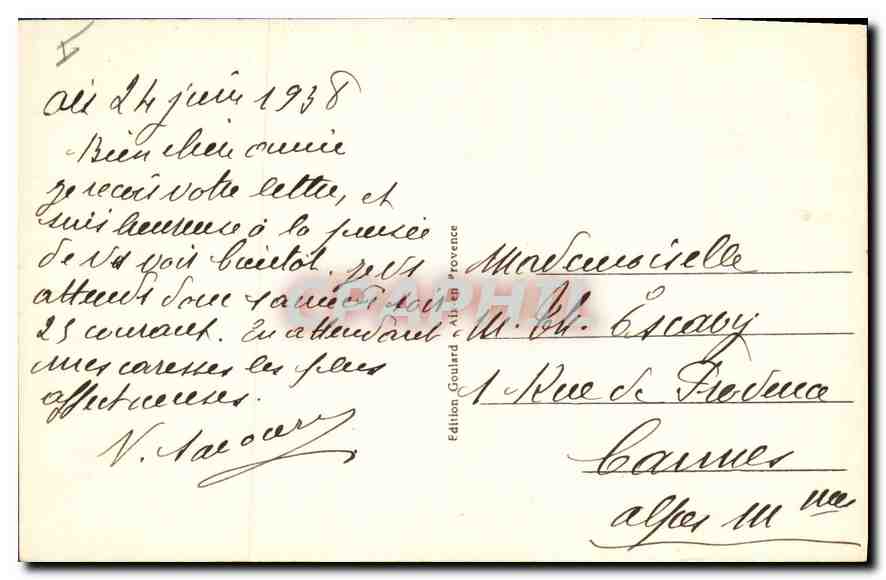 Aix 24 juin 1938
Bien chère amie
je reçois votre lettre, et
suis heureuse à la pensée
de vs voir bientôt. je vs
attends donc samedi soir
25 courant. En attendant
mes caresses les plus
affectueuses.
V.
Edition Goulard - Aix en Provence
CPAPHIL
Mademoiselle
M. Th. Escavy
1 Rue de Provence
Cannes
Alpes Mmes